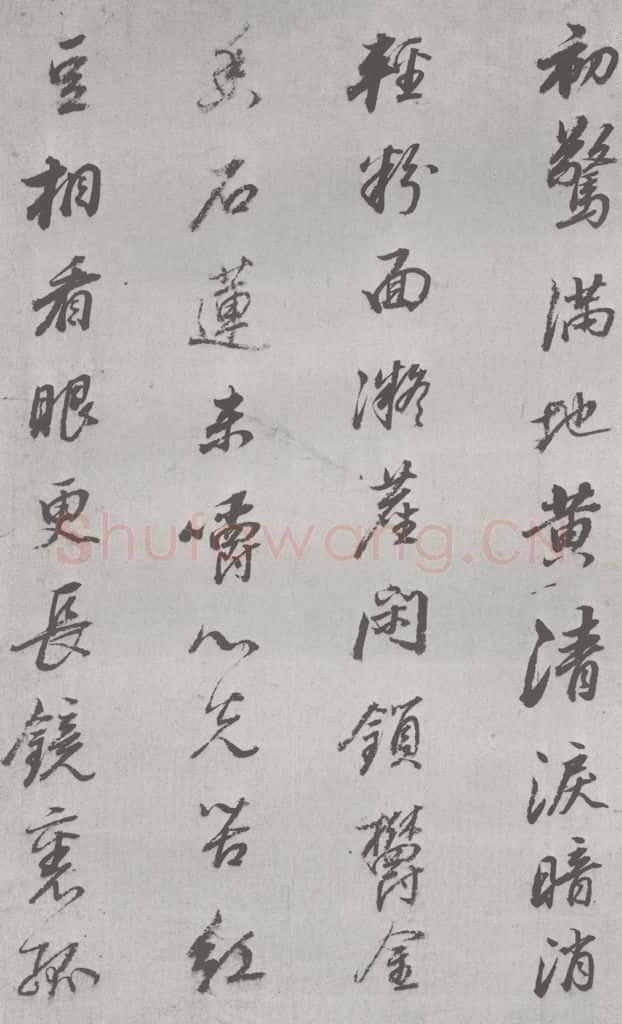 初驚滿地黄清淚暗消
輕粉面凝塵閑鎖鬱金
香石蓮未嚼心先苦紅
豆相看眼更長鏡裏孤
Shufawang.CN